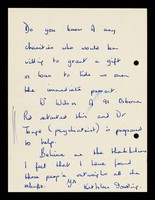 Do you know of any
charities who would be
willing to grant a gift
or loan to tide us over
the immediate payment.
D Wilson of 91 Osborne
Rd attended this and Dr
(psychiatrist) is prepared
to help.
Believe me the
I feel that I have found
these people outweighs all the
others. Yrs
Kathleen